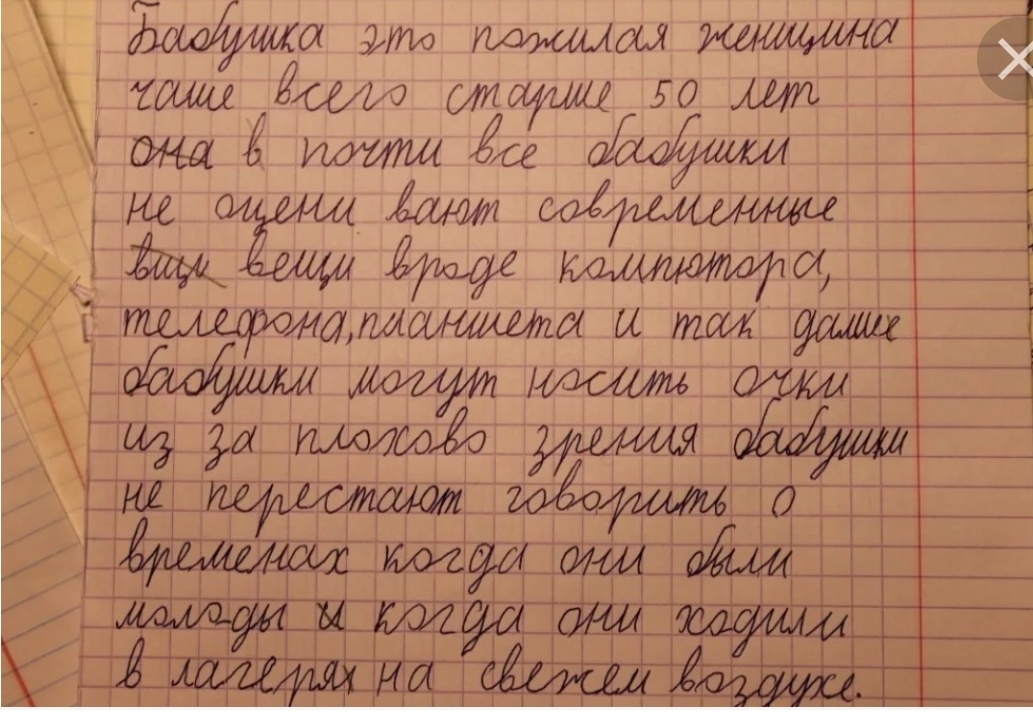 Бабушка это пожилая женщина
чаше всего старше 50 лет
она в почти все бабушки
не оцени вают современные
вищи вещи вроде компютора,
телефона, планшета и так далше
бабушки могут носить очки
из за плохово зрения бабушки
не перестают говорить о
временах когда они были
молоды и когда они ходили
в лагерях на свежем воздухе.